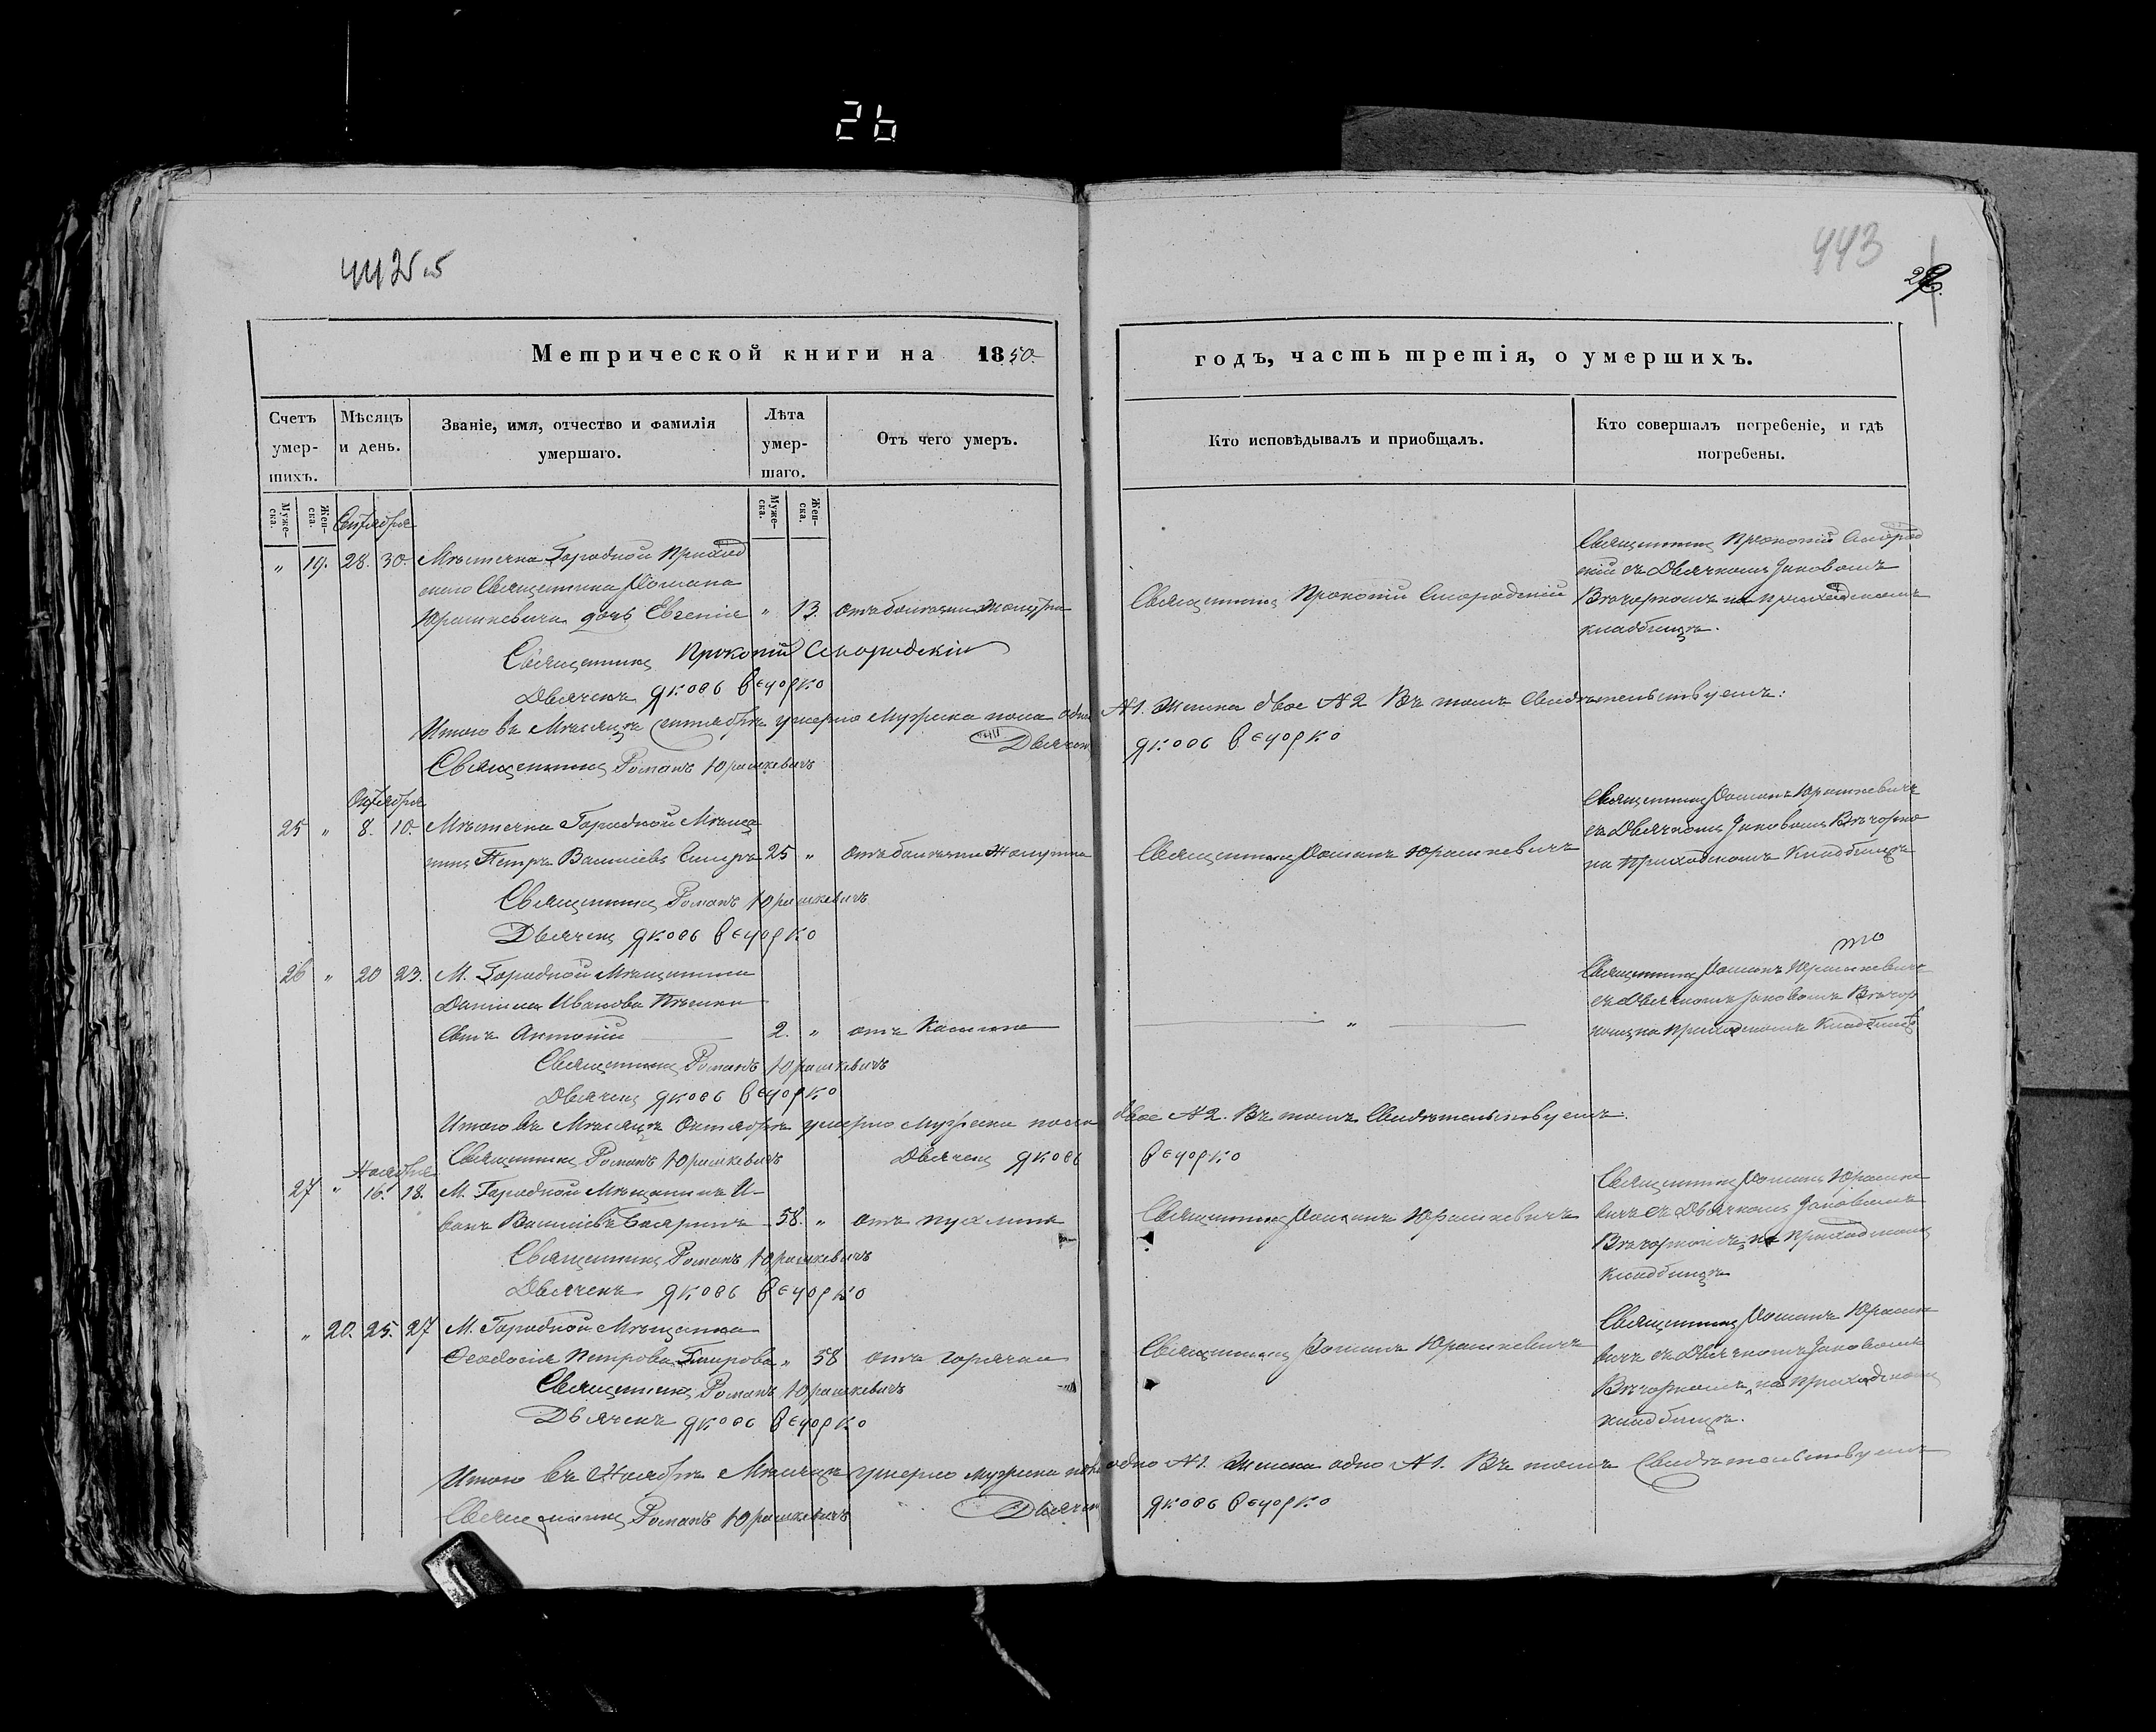 26
442об
443
Метрической книги на 1850
годъ, часть третія, о умершихъ.
Счетъ умершихъ.
Мѣсяцъ и день.
Званіе, имя, отчество и фамилія умершаго.
Лѣта умершаго.
Отъ чего умеръ.
Кто исповѣдывалъ и приобщалъ.
Кто совершалъ погребеніе, и гдѣ погребены.
Мужеска.
Женска.
Мужеска.
Женска.
Сентября
" 19. 28. 30. Мѣстечка Городной Приход
скаго Священника Романа
Юрашкевича дочь Евгенія " 13. отъ болѣзни Желудка
Священникъ Прокопій
Священникъ Прокопій
съ Дьячкомъ Іаковомъ
Вѣчоркомъ на приходскомъ
кладбищѣ.
Священникъ Прокопій
Дьячекъ Яковъ Вечорко
Итого въ Мѣсяцѣ Сентябрѣ умерло Мужеска пола одно №1. Женска двое №2 Въ томъ Свидѣтельствуемъ:
Священникъ Романъ Юрашкевичъ Дьячекъ Яковъ Вечорко
Октября
25 " 8. 10. Мѣстечка Городной Мѣща
нинъ Петръ Василіевъ 25 " отъ болѣзни Желудка
Священникъ Романъ Юрашкевичъ
Священникъ Романъ Юрашкевичъ
съ Дьячкомъ Іаковомъ Вѣчорко
на Приходскомъ Кладбищѣ
Священникъ Романъ Юрашкевичъ
Дьячекъ Яковъ Вечорко
26 " 20 23. М. Городной Мѣщанина
Даніила Иванова
сынъ Антоній 2. " отъ Кашля
"
Священникъ Романъ Юрашкевичъ
съ Дьячкомъ Іаковомъ Вѣчор
комъ на приходскомъ Кладбищѣ
Священникъ Романъ Юрашкевичъ
Дьячекъ Яковъ Вечорко
Итого въ Мѣсяцѣ Октябрѣ умерло Мужеска пола двое №2. Въ томъ Свидѣтельствуемъ:
Священникъ Романъ Юрашкевичъ Дьячекъ Яковъ Вечорко
Ноября
27 " 16. 18. М. Городной Мѣщанинъ И-
ванъ Василіевъ 58. " отъ пухлины
Священникъ Романъ Юрашкевичъ
Священникъ Романъ Юрашке
вичъ съ Дьячкомъ Іаковомъ
Вѣчоркомъ, на приходскомъ
кладбищѣ
Священникъ Романъ Юрашкевичъ
Дьячекъ Яковъ Вечорко
" 20. 25. 27 М. Городной Мѣщанка
Ѳеодосія Петрова " 58 отъ горячки
Священникъ Романъ Юрашкевичъ
Священникъ Романъ Юрашке
вичъ съ Дьячкомъ Іаковомъ
Вѣчоркомъ, на приходскомъ
кладбищѣ.
Священникъ Романъ Юрашкевичъ
Дьячекъ Яковъ Вечорко
Итого въ Ноябрѣ Мѣсяцѣ умерло Мужеска пола одно №1. Женска одно №1. Въ томъ Свидѣтельствуемъ
Священникъ Романъ Юрашкевичъ Дьячекъ Яковъ Вечорко